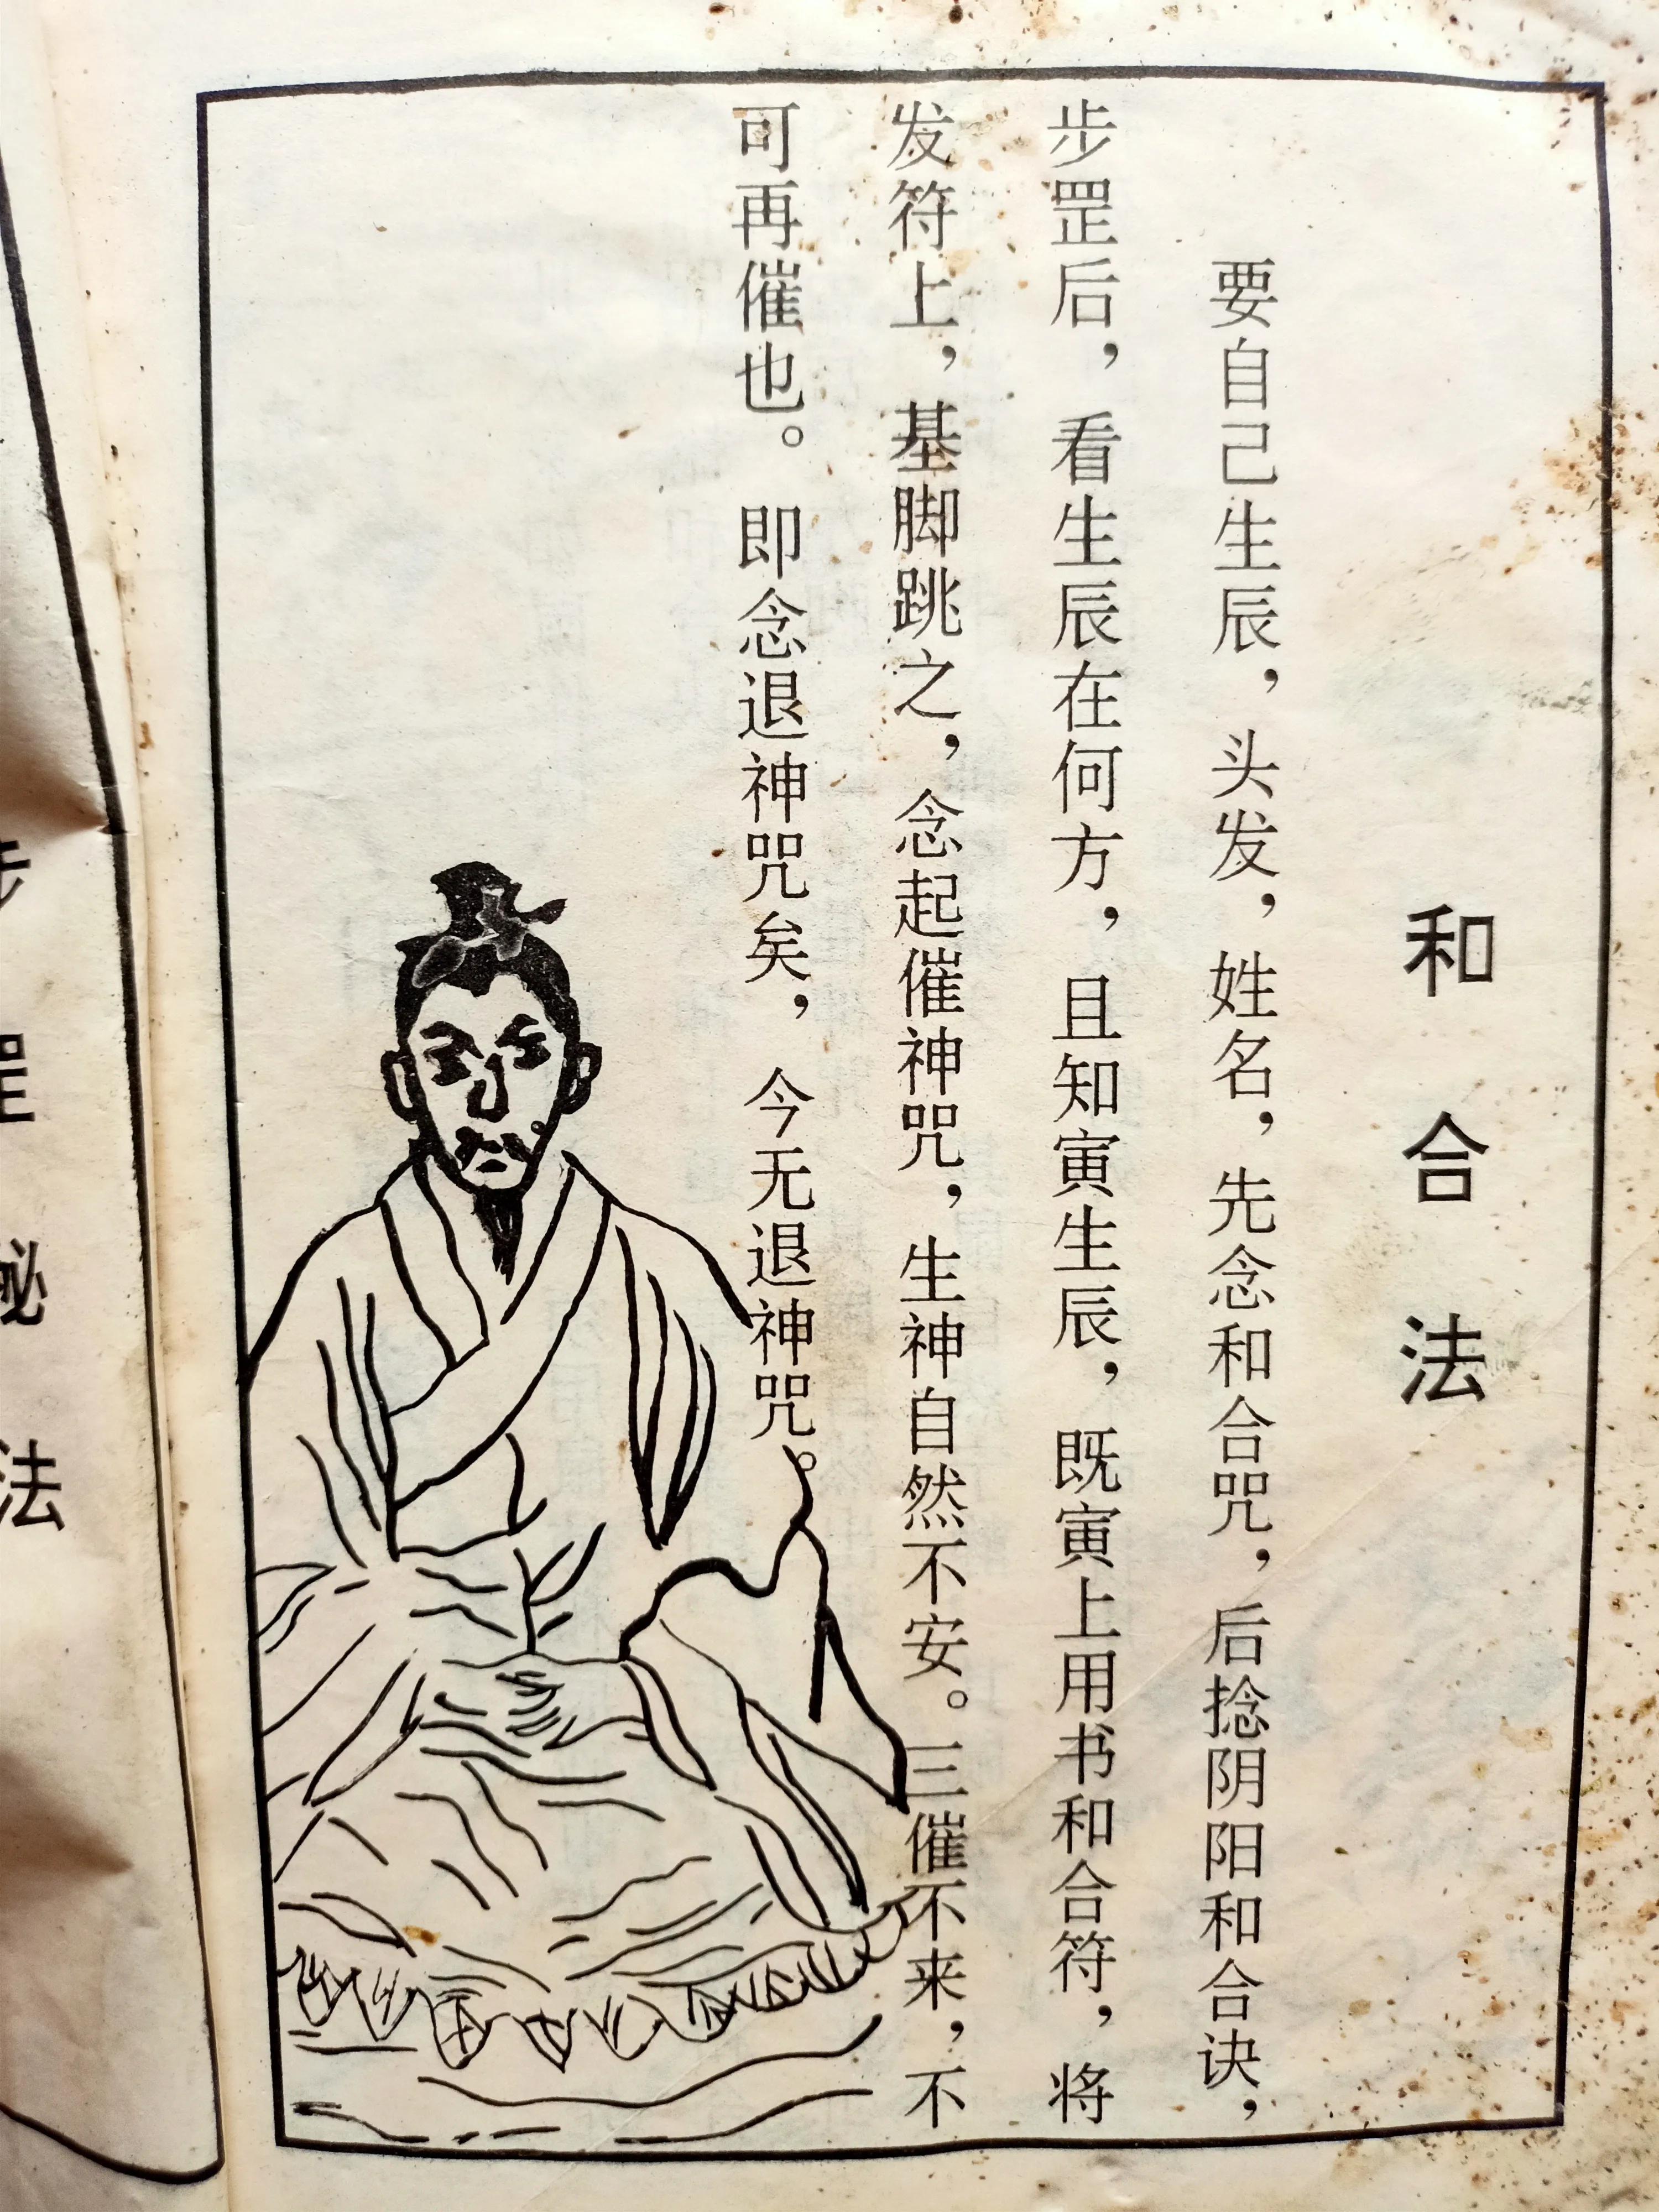 和合法
要自己生辰，头发，姓名，先念和合咒，后捻阴阳和合诀，
步罡后，看生辰在何方，且知寅生辰，既寅上用书和合符，将
发符上，基脚跳之，念起催神咒，生神自然不安。三催不来，不
可再催也。即念退神咒矣，今无退神咒。
罡秘法